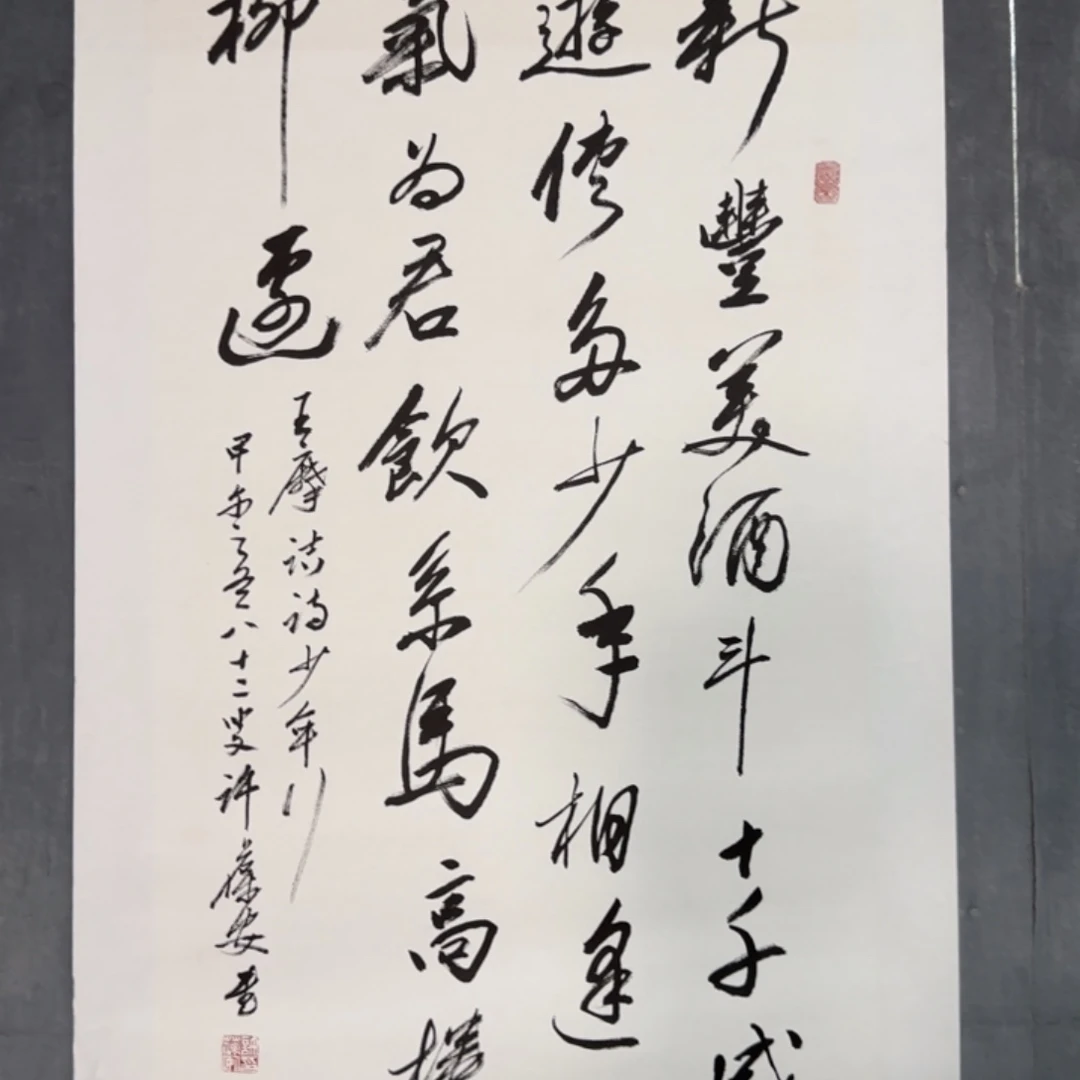 新豐美酒斗十千咸
遊俠多少年相逢
氣为君飲系馬高樓
柳邊
王摩詰詩少年行
甲午之八十二叟许葆安書